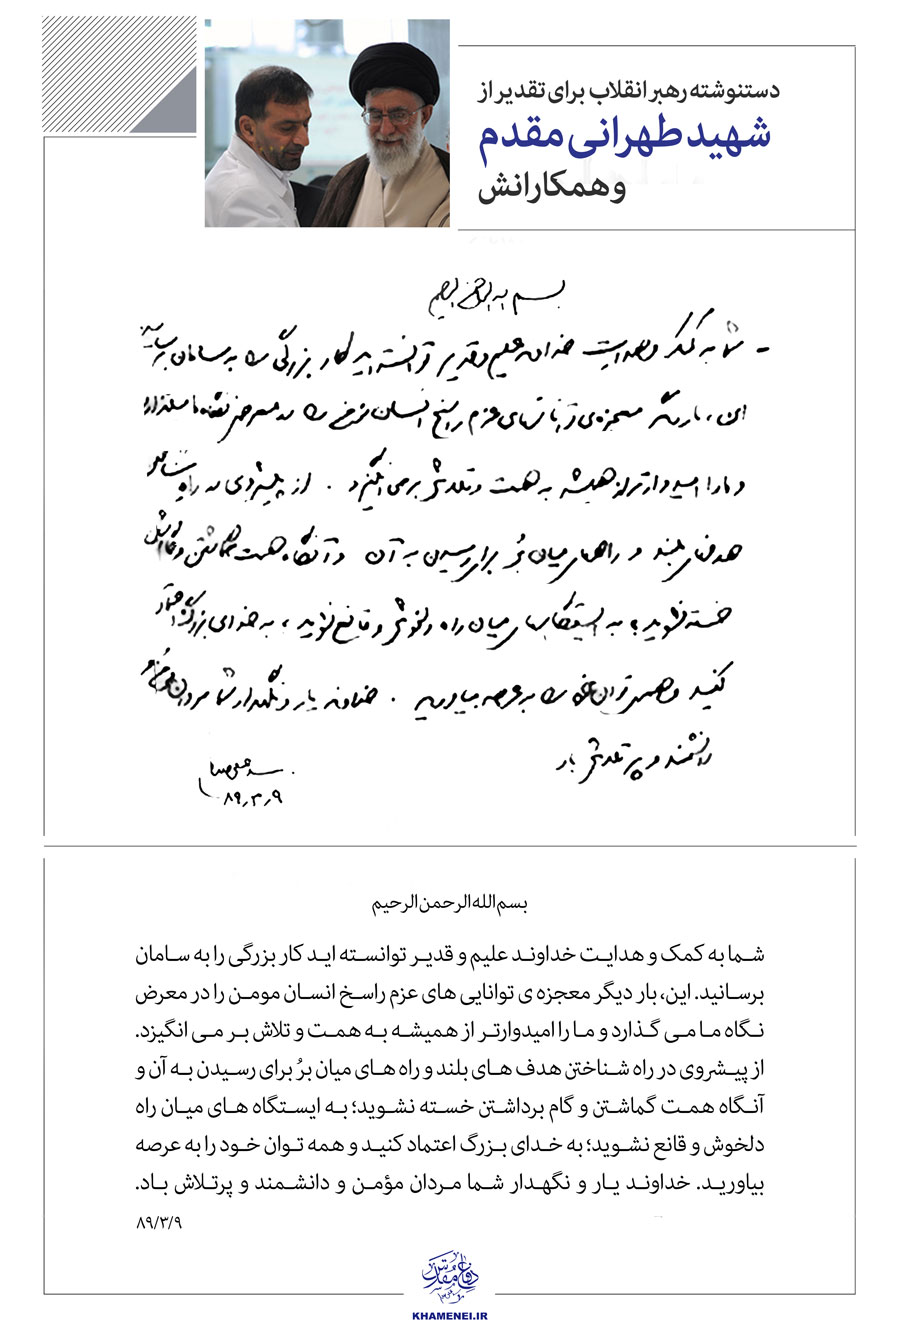 دستنوشته رهبر انقلاب برای تقدیر از
شهید طهرانی مقدم
و همکارانش
بسم الله الرحمن الرحیم
- شما به کمک و هدایت خداوند علیم و قدیر توانسته‌اید کار بزرگی را به سامان برسانید
این، بار دیگر معجزه‌ی توانائیهای عزم راسخ انسان مؤمن را در معرض نگاه ما میگذارد
و ما را امیدوارتر از همیشه به همت و تلاش بر می‌انگیزد . از پیشروی در راه شناختن
هدفهای بلند و راههای میان بُر برای رسیدن به آن و آنگاه همت گماشتن و گام برداشتن
خسته نشوید؛ به ایستگاههای میان راه دلخوش و قانع نشوید، به خدای بزرگ اعتماد
کنید و همه‌ی توان خود را به عرصه بیاورید . خداوند یار و نگهدار شما مردان مؤمن و
دانشمند و پر تلاش باد
سید علی خامنه‌ای
۸۹٫۳٫۹
بسم الله الرحمن الرحیم
شما به کمک و هدایت خداوند علیم و قدیر توانسته اید کار بزرگی را به سامان
برسانید. این، بار دیگر معجزه ی توانایی های عزم راسخ انسان مومن را در معرض
نگاه ما می گذارد و ما را امیدوارتر از همیشه به همت و تلاش بر می انگیزد.
از پیشروی در راه شناختن هدف های بلند و راه های میان برُ برای رسیدن به آن و
آنگاه همت گماشتن و گام برداشتن خسته نشوید؛ به ایستگاه های میان راه
دلخوش و قانع نشوید؛ به خدای بزرگ اعتماد کنید و همه توان خود را به عرصه
بیاورید. خداوند یار و نگهدار شما مردان مؤمن و دانشمند و پرتلاش باد.
۸۹/۳/۹
دفاع مقدس
KHAMENEI.IR